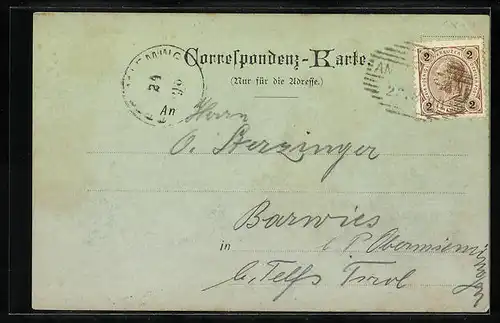 Correspondenz-Karte.
(Nur für die Adresse.)
MING
24
98
An
AN
2
2 2
2 2
Herrn
O. Sterzinger
Barwies
in P. Obermieming
b. Telfs Tirol